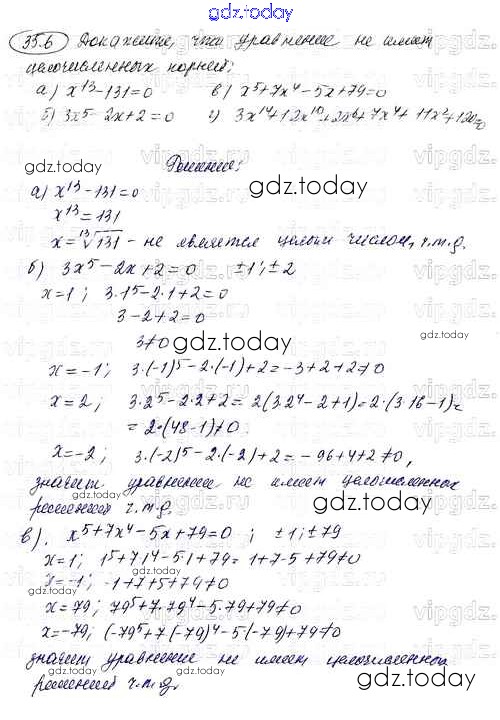 gdz.today
35.6 Докажите, что уравнение не имеет
целочисленных корней:
а) x¹³-131=0 в) x⁵+7x⁴-5x+79=0
б) 3x⁵-2x+2=0 г) 3x¹⁴+12x¹⁰+2x⁶+7x⁴+11x²+120=0
gdz.today
Решение:
а) x¹³-131=0
x¹³=131
x=¹³√131 - не является целым числом, ч.т.д.
б) 3x⁵-2x+2=0 ±1; ±2
x=1; 3·1⁵-2·1+2=0
3-2+2=0
3≠0
gdz.today
x=-1; 3·(-1)⁵-2·(-1)+2=-3+2+2≠0
x=2; 3·2⁵-2·2+2=2(3·2⁴-2+1)=2·(3·16-1)=
=2·(48-1)≠0
x=-2; 3·(-2)⁵-2·(-2)+2=-96+4+2≠0,
значит уравнение не имеет целочисленных
решений ч.т.д.
gdz.today
в). x⁵+7x⁴-5x+79=0; ±1; ±79
x=1; 1⁵+7·1⁴-5·1+79=1+7-5+79≠0
x=-1; -1+7+5+79≠0
x=79; 79⁵+7·79⁴-5·79+79≠0
x=-79; (-79⁵+7·(-79)⁴-5(-79)+79≠0
значит уравнение не имеет целочисленных
решений ч.т.д.
gdz.today